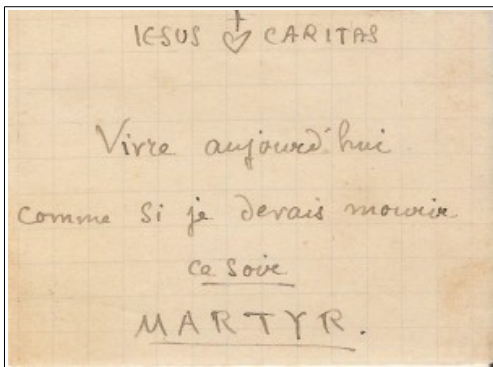 IESUS CARITAS
Vivre aujourd'hui
comme si je devais mourir
ce soir
MARTYR.